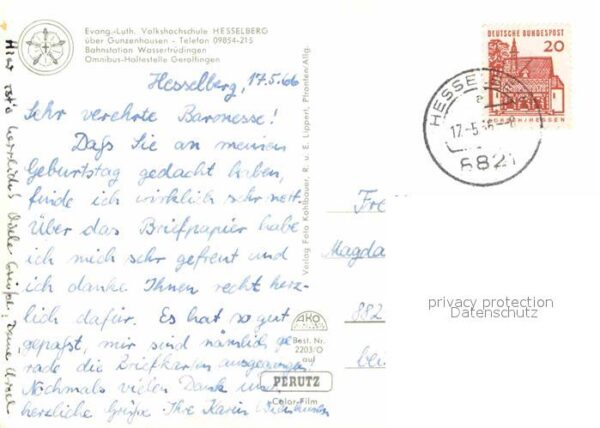 Evang.-Luth. Volkshochschule HESSELBERG
über Gunzenhausen - Telefon 09854-215
Bahnstation Wassertrüdingen
Omnibus-Haltestelle Gerolfingen
Hesselberg, 17.5.66
Sehr verehrte Baronesse!
Daß Sie an meinen
Geburtstag gedacht haben,
finde ich wirklich sehr nett.
Über das Briefpapier habe
ich mich sehr gefreut und
ich danke Ihnen recht herz-
lich dafür. Es hat so gut
gepaßt, mir sind nämlich ge
rade die Briefkarten ausgegangen.
Nochmals vielen Dank und
herzliche Grüße. Ihre Karin
Hier ist's herrlich! Viele Grüße,
Verlag Foto Kohlbauer, R. u. E. Lipperl, Pfronten/Allg.
AKO
Best. Nr.
2203/O
auf
PERUTZ
Color-Film
DEUTSCHE BUNDESPOST
20
LORSCH/HESSEN
HESSELBERG
a
17.-5.66
8821
Fre
Magda
882
bei
privacy protection
Datenschutz